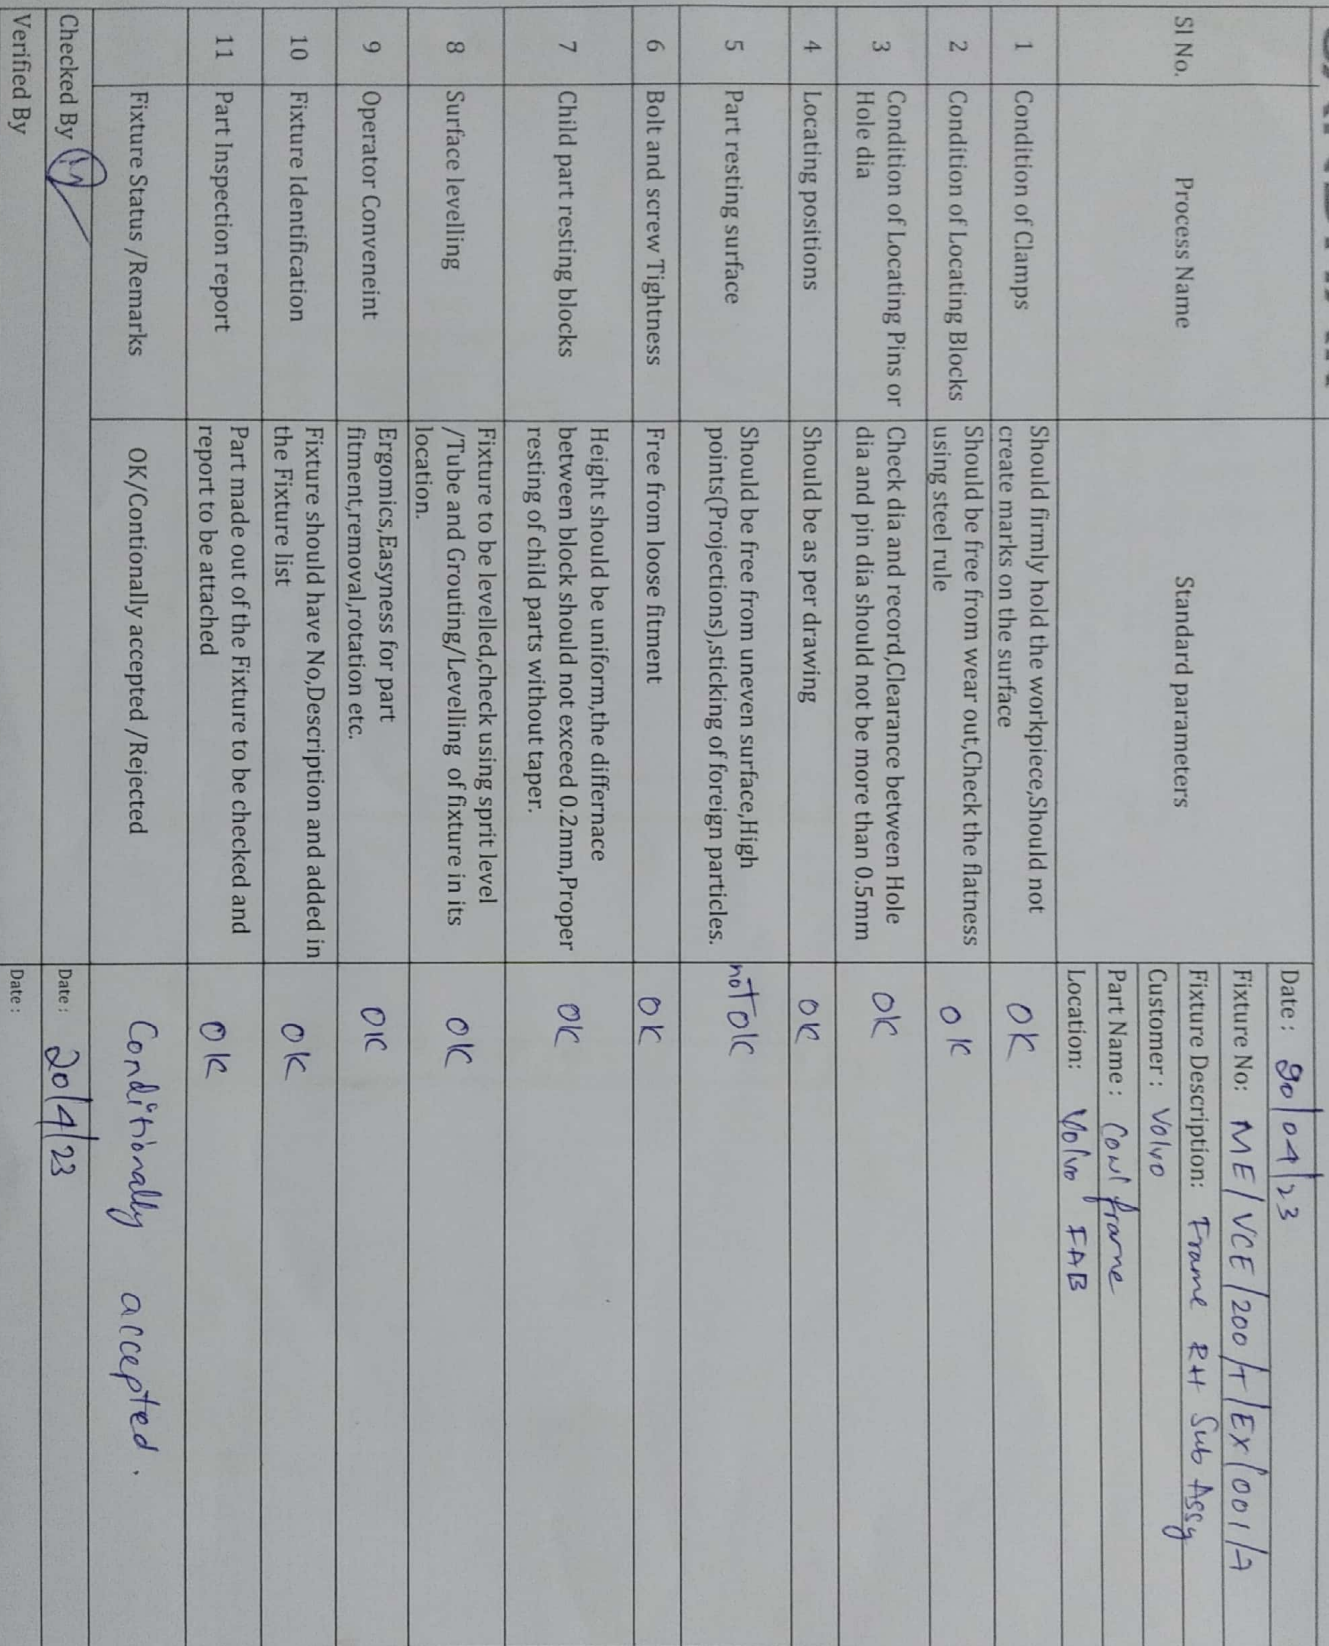 Date : 20/04/23
Fixture No: ME/VCE/200/T/EX/001/7
Fixture Description: Frame RH Sub Assy
Customer : Volvo
Part Name : Cowl frame
Location: Volvo FAB
Sl No. Process Name Standard parameters
1 Condition of Clamps Should firmly hold the workpiece,Should not
create marks on the surface
OK
2 Condition of Locating Blocks Should be free from wear out,Check the flatness
using steel rule
OK
3 Condition of Locating Pins or Check dia and record,Clearance between Hole
Hole dia dia and pin dia should not be more than 0.5mm
OK
4 Locating positions Should be as per drawing OK
5 Part resting surface Should be free from uneven surface,High
points(Projections),sticking of foreign particles.
not OK
6 Bolt and screw Tightness Free from loose fitment OK
7 Child part resting blocks Height should be uniform,the differnace
between block should not exceed 0.2mm,Proper
resting of child parts without taper.
OK
8 Surface levelling Fixture to be levelled,check using sprit level
/Tube and Grouting/Levelling of fixture in its
location.
OK
9 Operator Conveneint Ergomics,Easyness for part
fitment,removal,rotation etc.
OK
10 Fixture Identification Fixture should have No,Description and added in
the Fixture list
OK
11 Part Inspection report Part made out of the Fixture to be checked and
report to be attached
OK
Fixture Status /Remarks OK/Contionally accepted /Rejected Conditionally accepted.
Checked By Date : 20/4/23
Verified By Date :